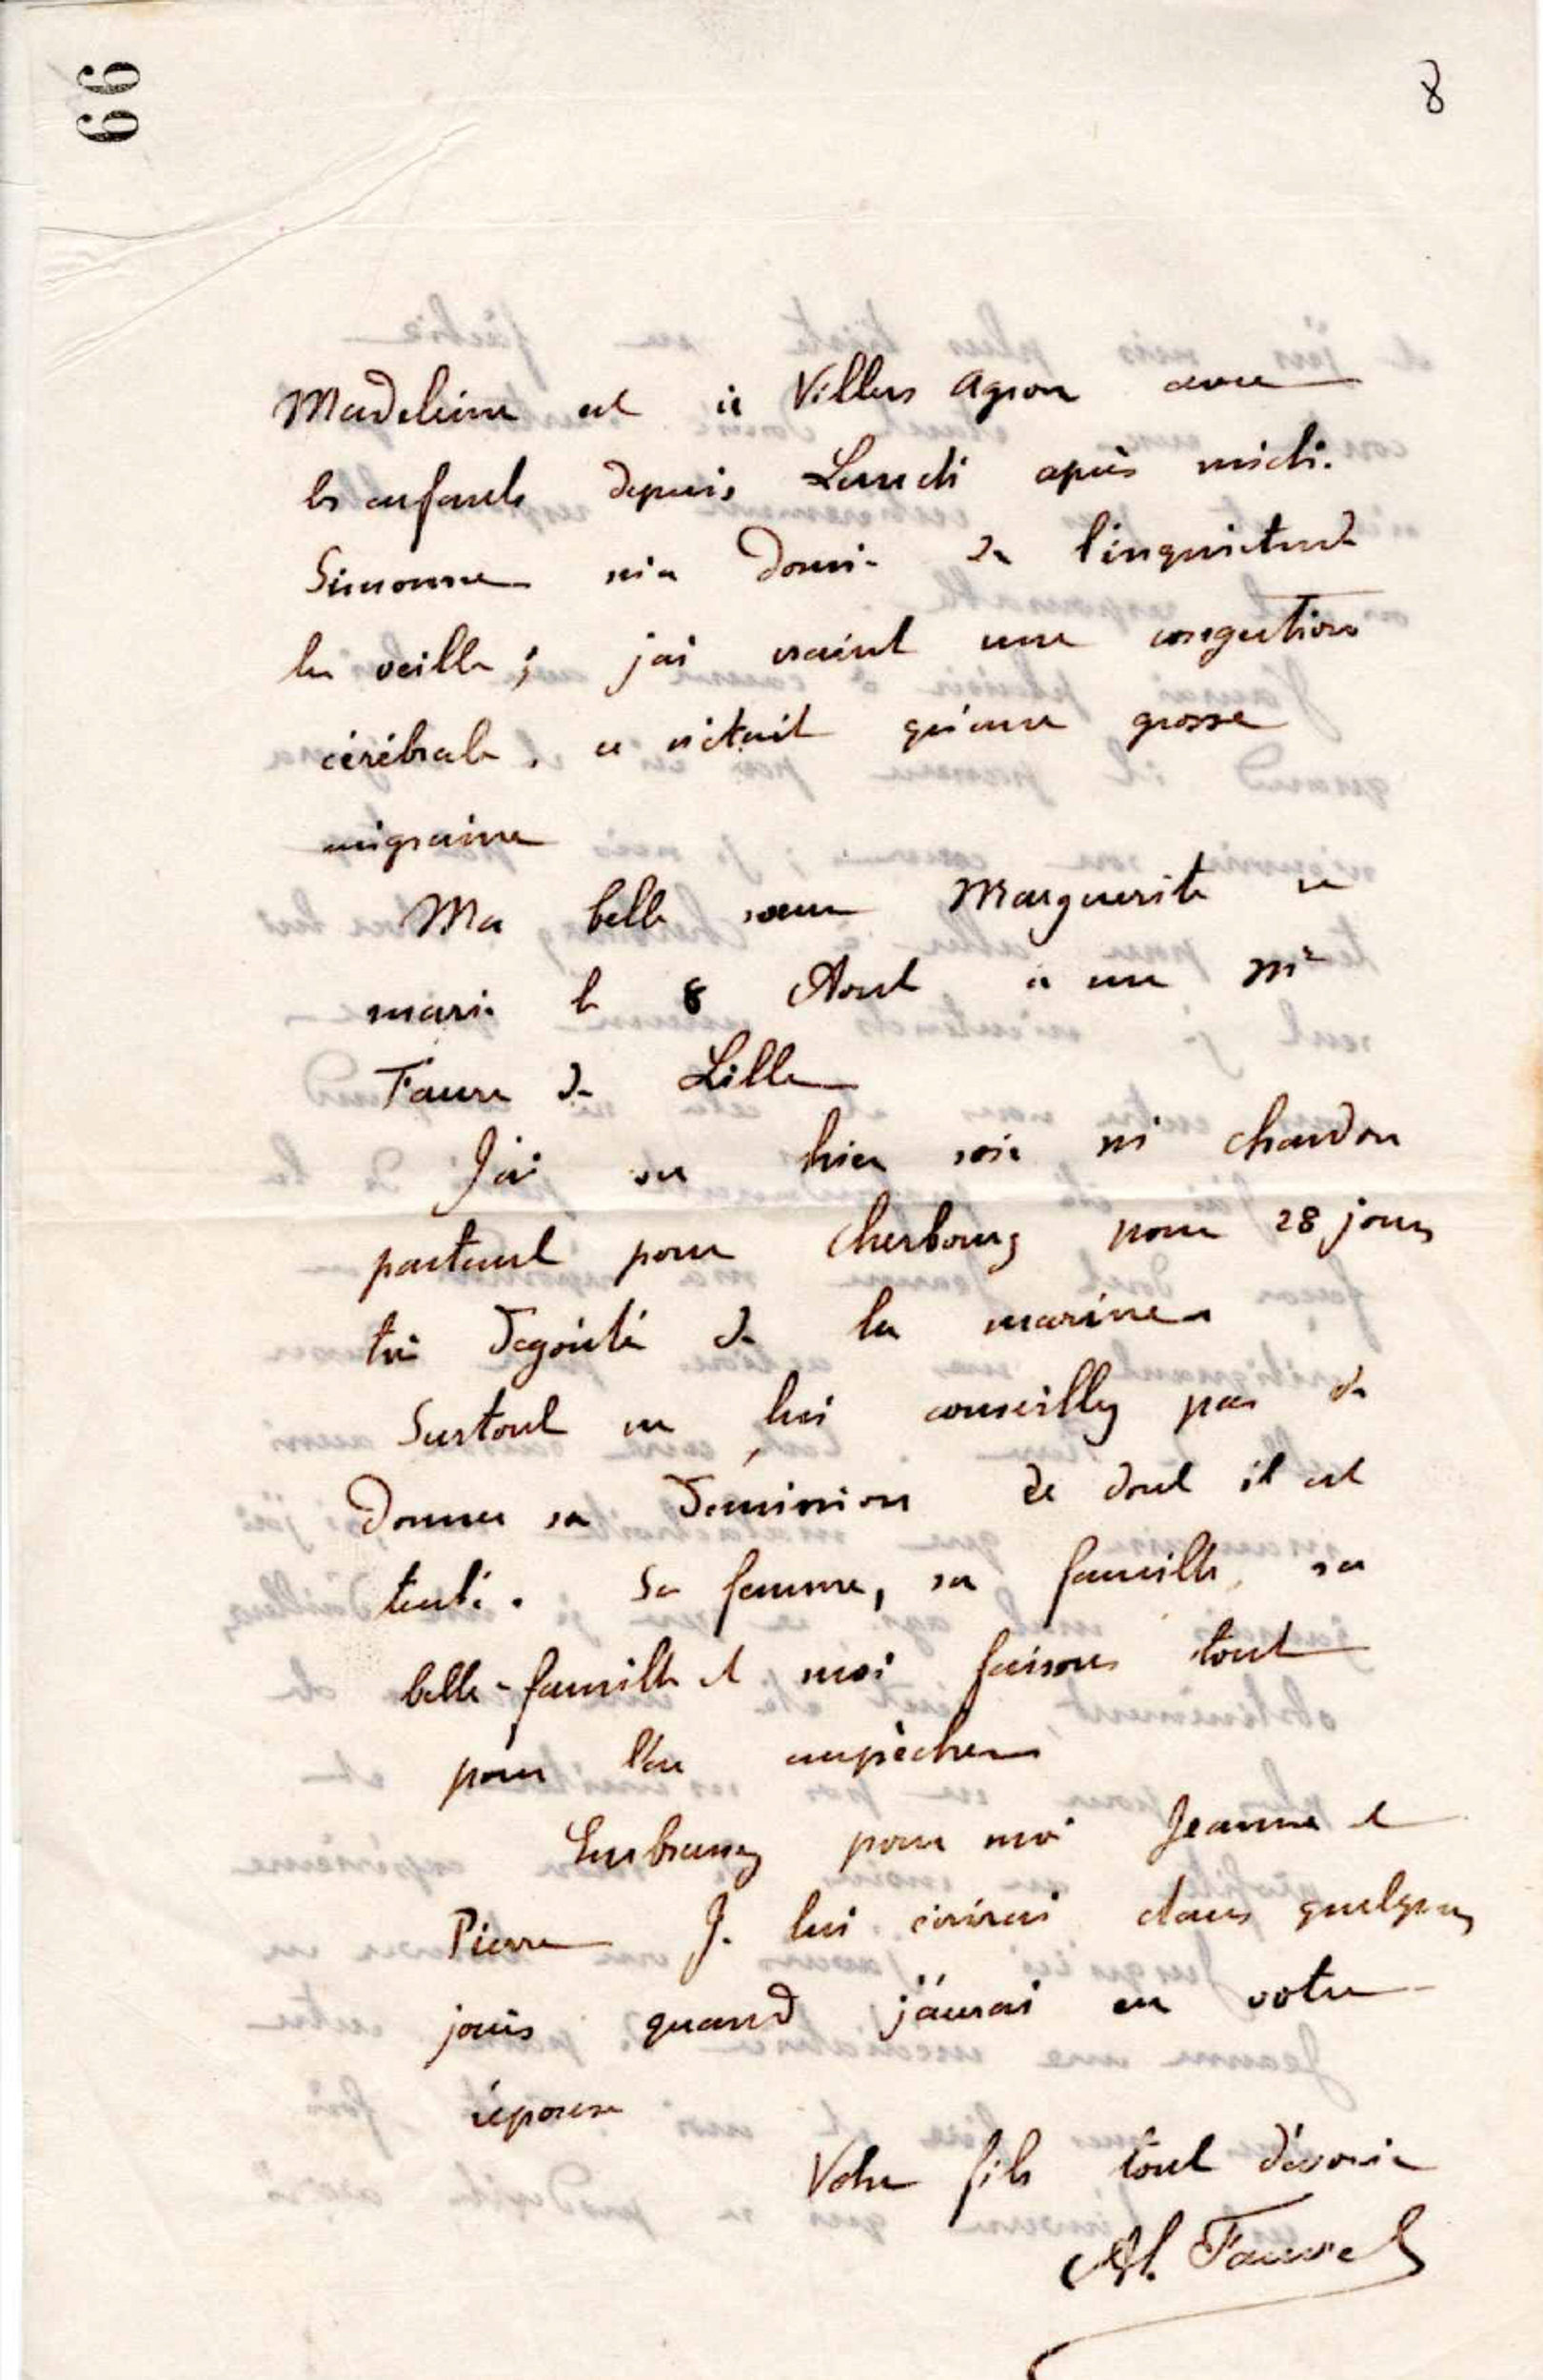 66
8
Madeleine est à Villers Agron avec
les enfants depuis Lundi après midi.
Simonne m'a donné de l'inquiétude
la veille ; j'ai craint une congestion
cérébrale, ce n'était qu'une grosse
migraine
Ma belle soeur Marguerite se
marie le 8 Aout à un Mr
Faure de Lille
J'ai vu hier soir Mr Chardon
partant pour Cherbourg pour 28 jours
très dégoûté de la marine
Surtout ne lui conseillez pas de
donner sa démission de dont il est
tenté. Sa femme, sa famille, sa
belle-famille et moi faisons tout
pour l'en empêcher
Embrassez pour moi Jeanne et
Pierre Je lui écrirai dans quelques
jours quand j'aurai eu votre
réponse
Votre fils tout dévoué
Al. Fauvel